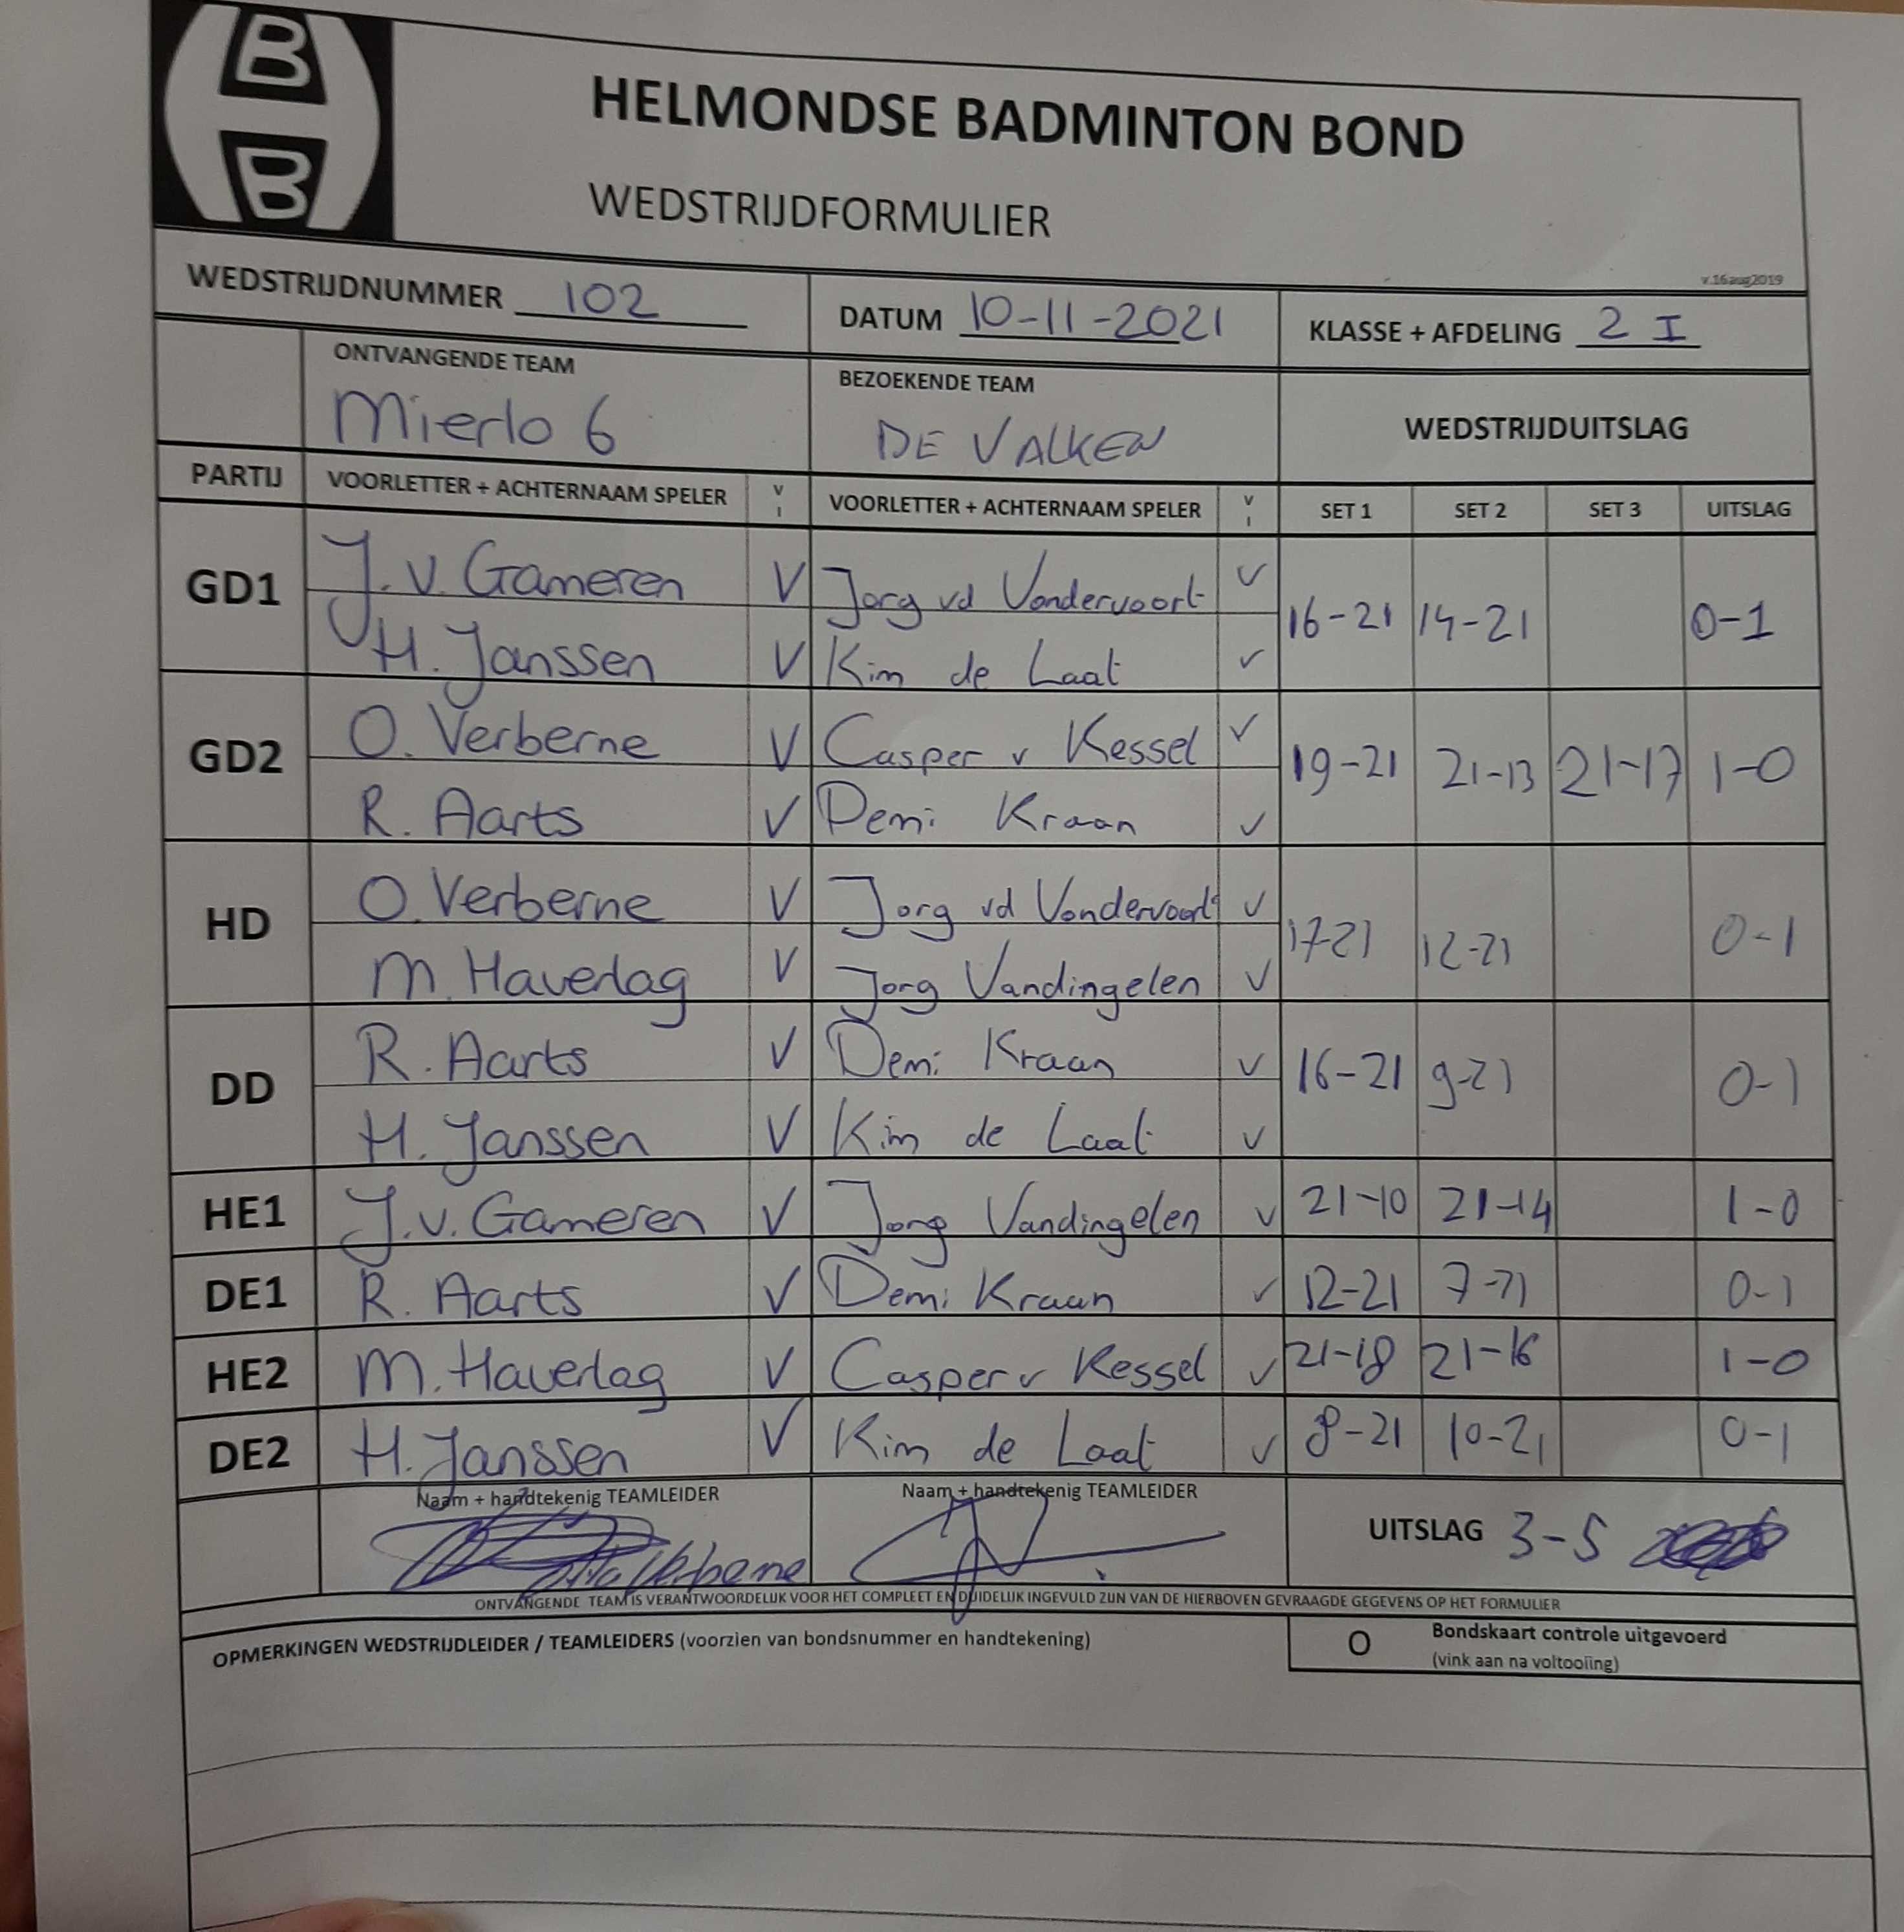 B
B
HELMONDSE BADMINTON BOND
WEDSTRIJDFORMULIER
v.16aug2019
WEDSTRIJDNUMMER 102 DATUM 10-11-2021 KLASSE + AFDELING 2 I
ONTVANGENDE TEAM BEZOEKENDE TEAM WEDSTRIJDUITSLAG
Mierlo 6 DE VALKEN
PARTIJ VOORLETTER + ACHTERNAAM SPELER V I VOORLETTER + ACHTERNAAM SPELER V I SET 1 SET 2 SET 3 UITSLAG
GD1 J. v. Gameren V Jorg vd Vondervoort V 16-21 14-21 0-1
H. Janssen V Kim de Laat V
GD2 O. Verberne V Casper v Kessel V 19-21 21-13 21-17 1-0
R. Aarts V Demi Kraan V
HD O. Verberne V Jorg vd Vondervoort V 17-21 12-21 0-1
M. Haverlag V Jorg Vandingelen V
DD R. Aarts V Demi Kraan V 16-21 9-21 0-1
H. Janssen V Kim de Laat V
HE1 J. v. Gameren V Jorg Vandingelen V 21-10 21-14 1-0
DE1 R. Aarts V Demi Kraan V 12-21 7-21 0-1
HE2 M. Haverlag V Casper v Kessel V 21-18 21-16 1-0
DE2 H. Janssen V Kim de Laat V 8-21 10-21 0-1
Naam + handtekenig TEAMLEIDER Naam + handtekenig TEAMLEIDER UITSLAG 3-5
Verberne
ONTVANGENDE TEAM IS VERANTWOORDELIJK VOOR HET COMPLEET EN DUIDELIJK INGEVULD ZIJN VAN DE HIERBOVEN GEVRAAGDE GEGEVENS OP HET FORMULIER
OPMERKINGEN WEDSTRIJDLEIDER / TEAMLEIDERS (voorzien van bondsnummer en handtekening) O Bondskaart controle uitgevoerd
(vink aan na voltooiing)